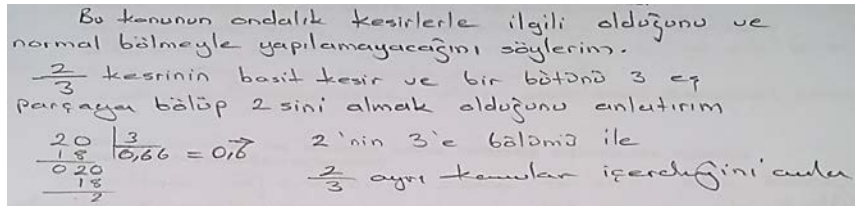 Bu konunun ondalık kesirlerle ilgili olduğunu ve
normal bölmeyle yapılamayacağını söylerim.
2/3 kesrinin basit kesir ve bir bütünü 3 eş
parçaya bölüp 2 sini almak olduğunu anlatırım
20 | 3 2'nin 3'e bölümü ile
18 0,66 = 0,6 2/3 ayrı konular içerdiğini
020
18
2